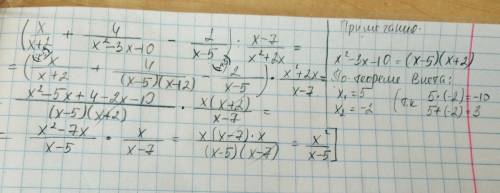 (x/(x+2) + 4/(x²-3x-10) - 1/(x-5)) · (x-7)/(x²+2x) =
= (x/(x+2) + 4/((x-5)(x+2)) - 2/(x-5)) · (x²+2x)/(x-7) =
(x²-5x+4-2x-10)/((x-5)(x+2)) · x(x+2)/(x-7) =
(x²-7x)/(x-5) · x/(x-7) = x(x-7)·x/((x-5)(x-7)) = x²/(x-5)
Примечание:
x²-3x-10=(x-5)(x+2)
По теореме Виета:
x₁=5
x₂=-2
(т.к 5·(-2)=-10
5+(-2)=3